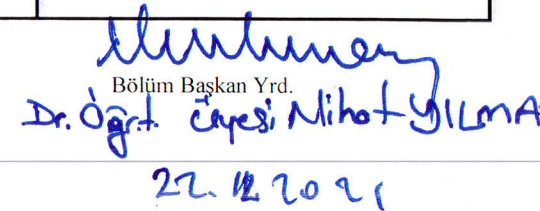 Bölüm Başkan Yrd.
Dr. Öğrt. Üyesi Nihat YILMA
22. 12 2021